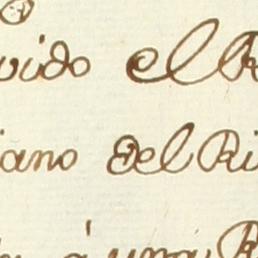 vido el R
iano del Ri
á una R